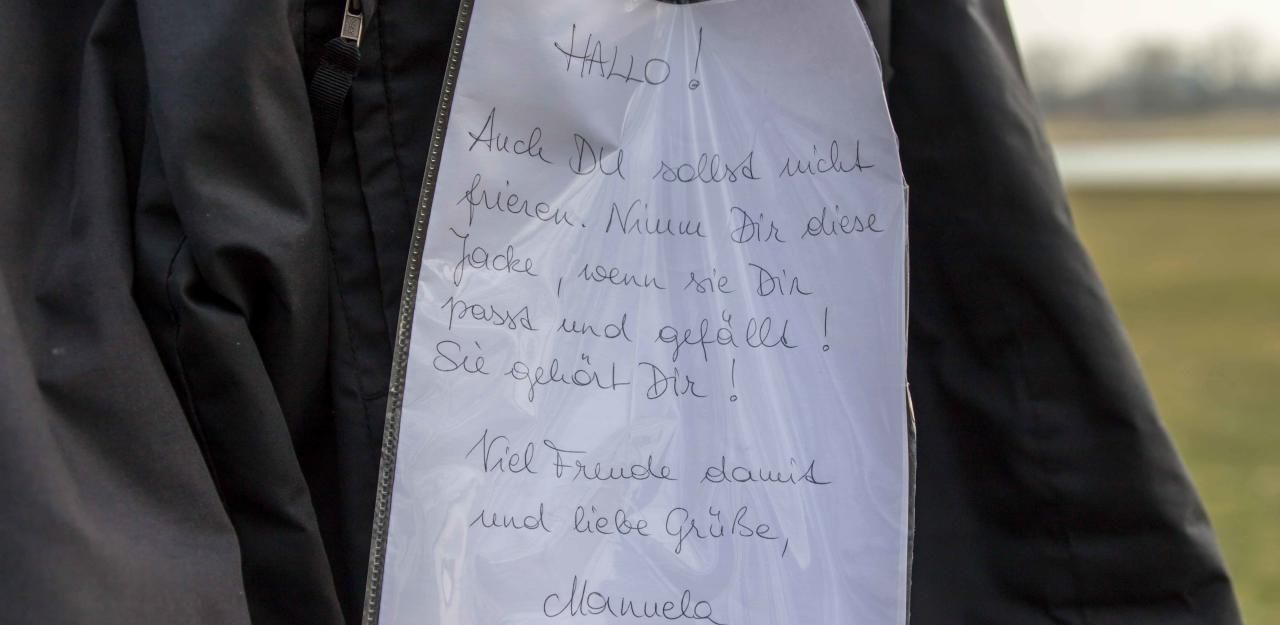 HALLO!
Auch DU sollst nicht
frieren. Nimm Dir diese
Jacke, wenn sie Dir
passt und gefällt!
Sie gehört Dir!
Viel Freude damit
und liebe Grüße,
Manuela